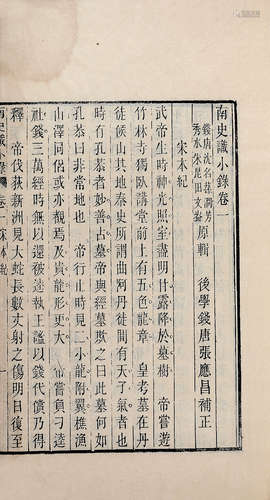 南史識小錄卷一
錢唐沈名蓀澗芳
秀水朱昆田文盎
原輯
後學錢唐張應昌補正
宋本紀
武帝生時神光照室盡明甘露降於墓樹　帝嘗遊
竹林寺獨臥講堂前上有五色龍章　皇考墓在丹
徒候山其地秦史所謂曲阿丹徒間有天子氣者也
時有孔恭者妙善占墓帝與經墓欺之曰此墓何如
孔恭曰非常地也　帝行止時見二小龍附翼樵漁
山澤同侶或亦觀焉及貴龍形更大　帝嘗負刁逵
社錢三萬經時無以還被逵執王謐以錢代償乃得
釋　帝伐荻新洲見大蛇長數丈射之傷明日復至
南史識小錄
卷一
宋本紀
一